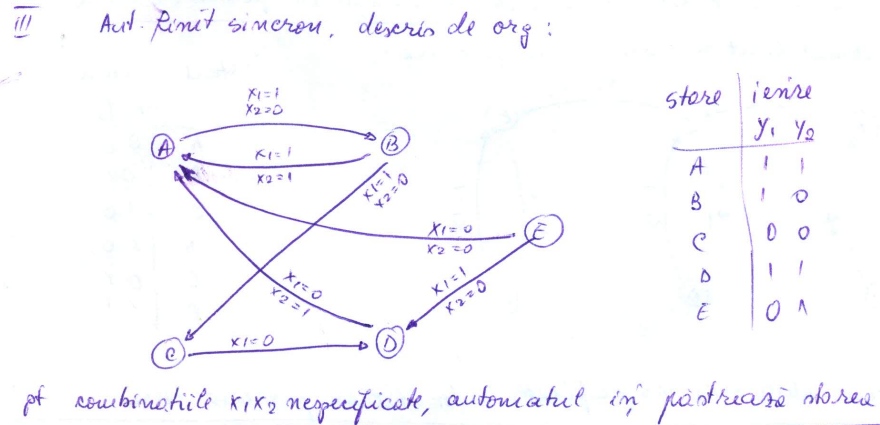 III. Aut. finit sincron, descris de org :
x1=1
x2=0
A
B
x1=1
x2=1
x1=1
x2=0
x1=0
x2=0
E
x1=0
x2=1
x1=1
x2=0
C
x1=0
D
stare ieșire
y1 y2
A 1 1
B 1 0
C 0 0
D 1 1
E 0 1
pt combinatiile x1x2 nespecificate, automatul iși păstrează starea